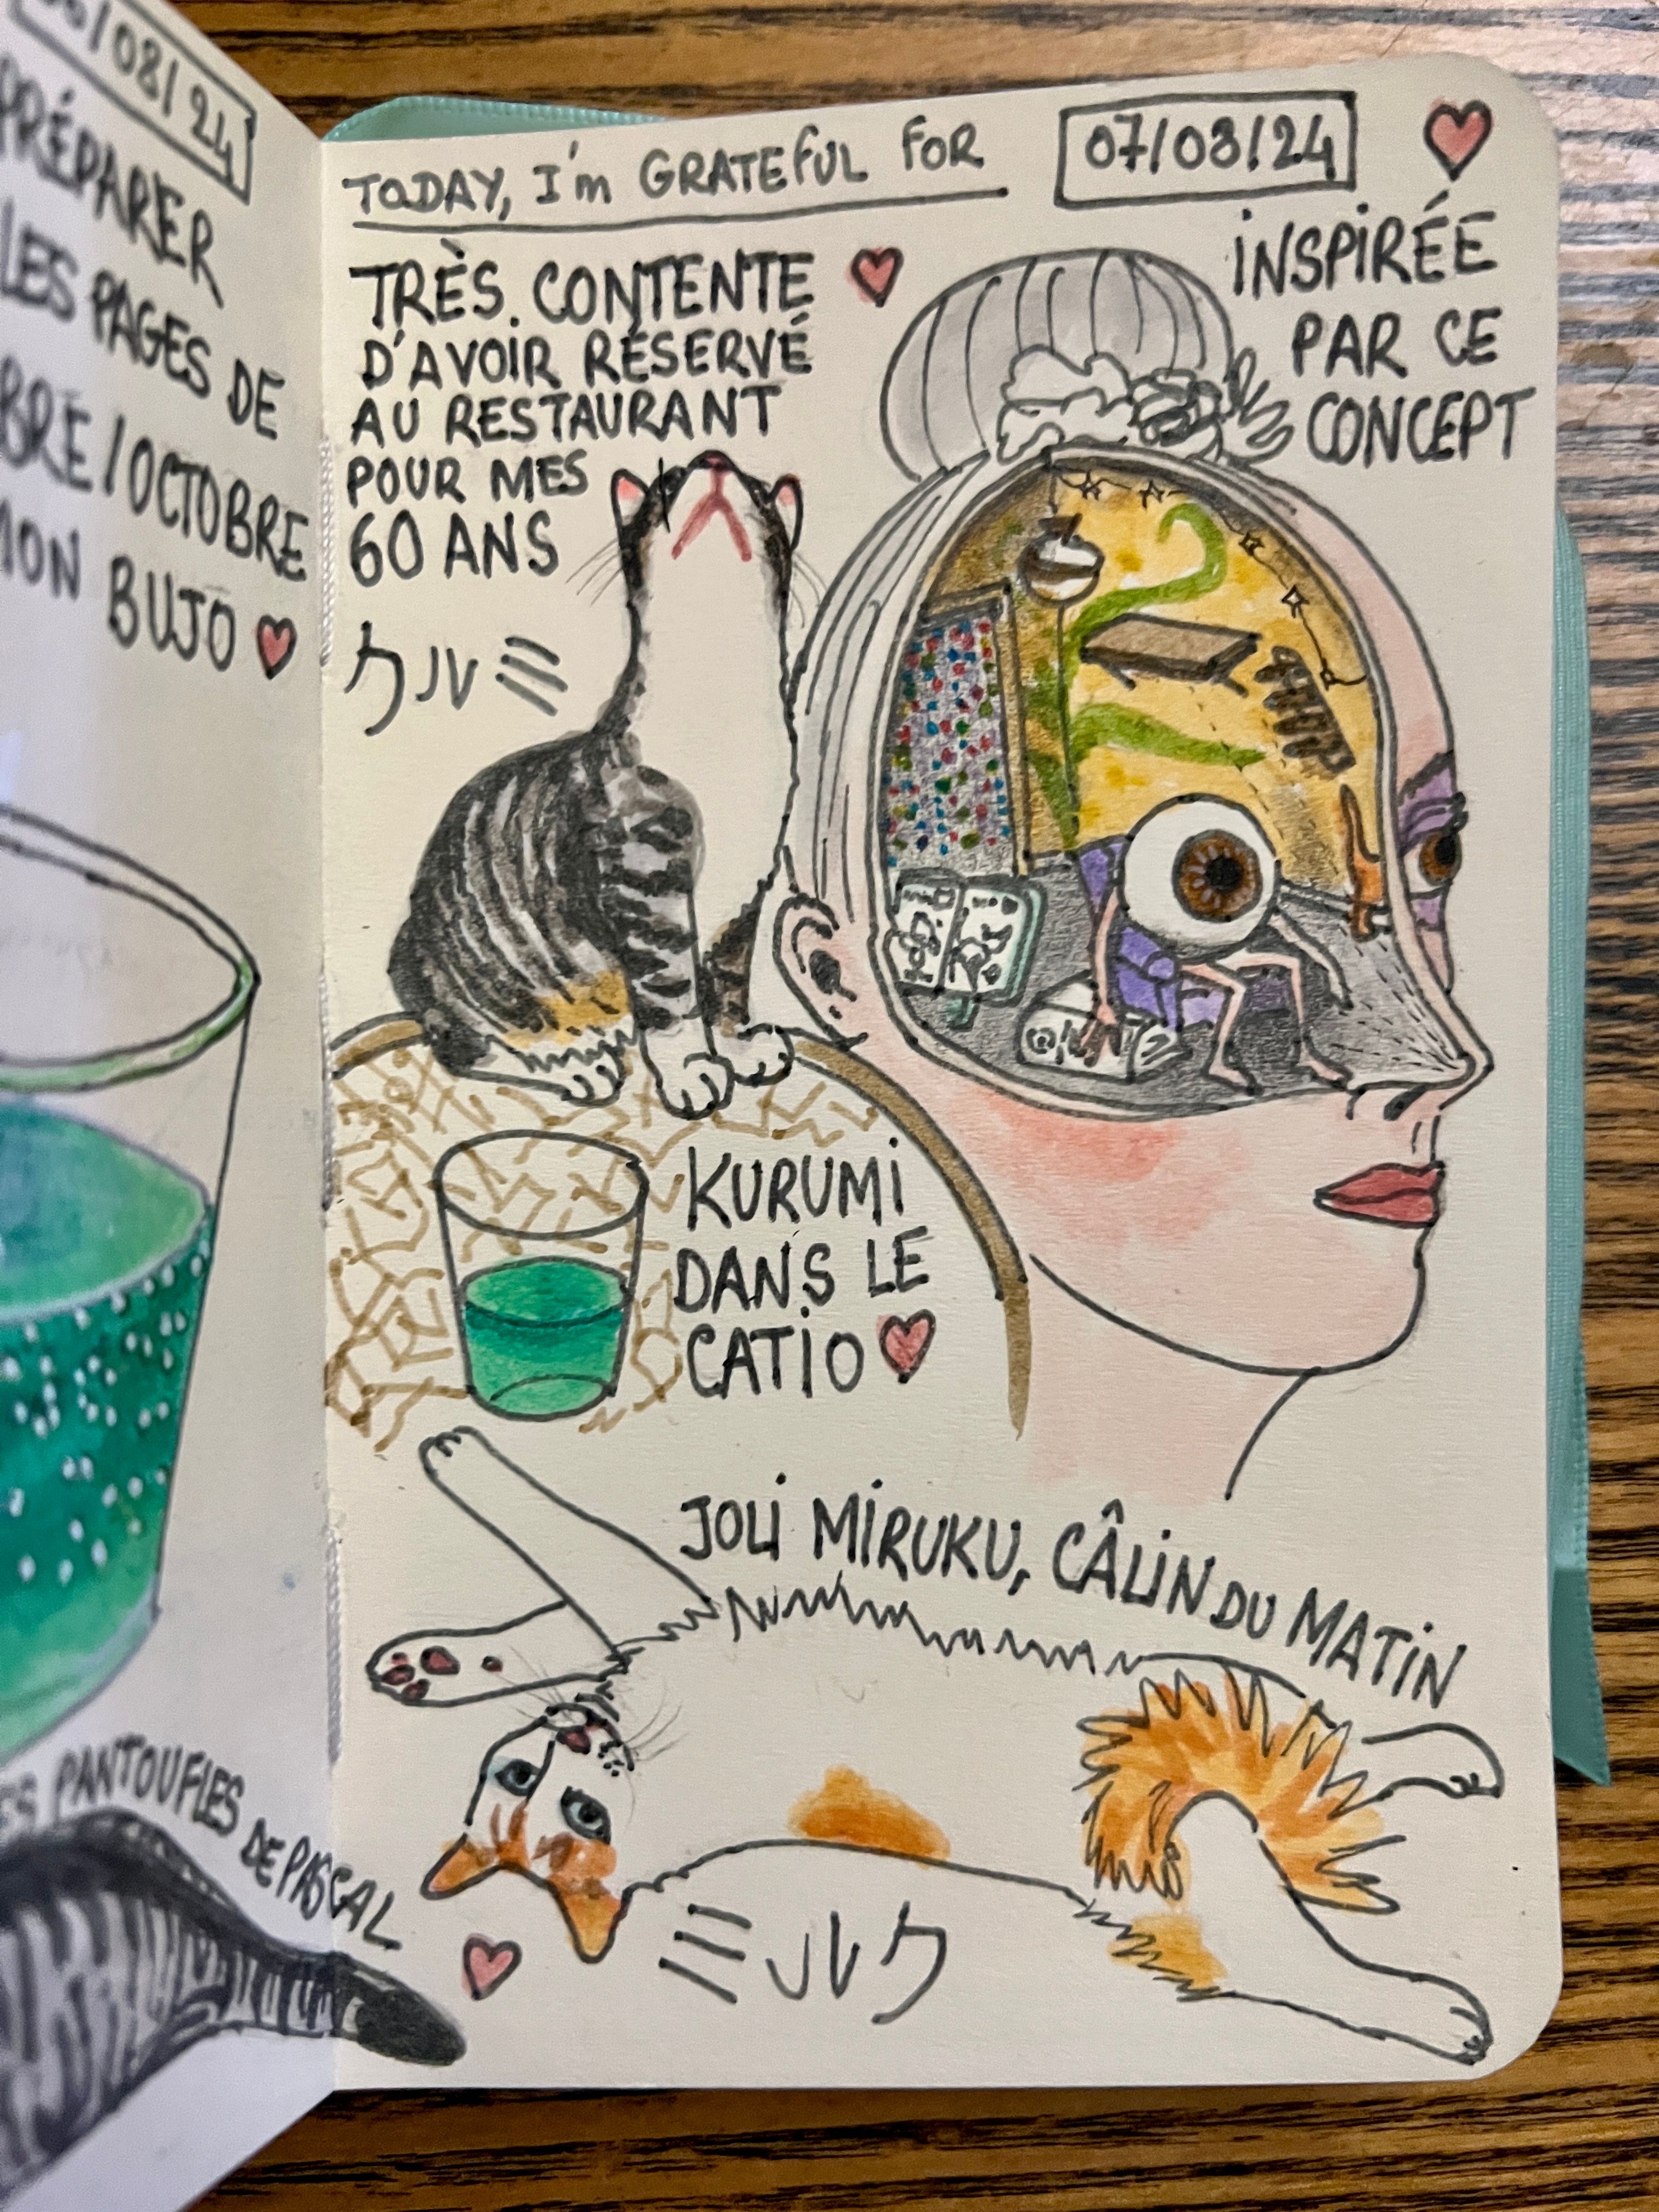 /08/24
PRÉPARER
LES PAGES DE
BRE/OCTOBRE
MON BUJO
PANTOUFLES DE PASCAL
TODAY, I'm GRATEFUL FOR
07/08/24
TRÈS CONTENTE
D'AVOIR RÉSERVÉ
AU RESTAURANT
POUR MES
60 ANS
クルミ
INSPIRÉE
PAR CE
CONCEPT
KURUMI
DANS LE
CATIO
JOLI MIRUKU, CÂLIN DU MATIN
ミルク